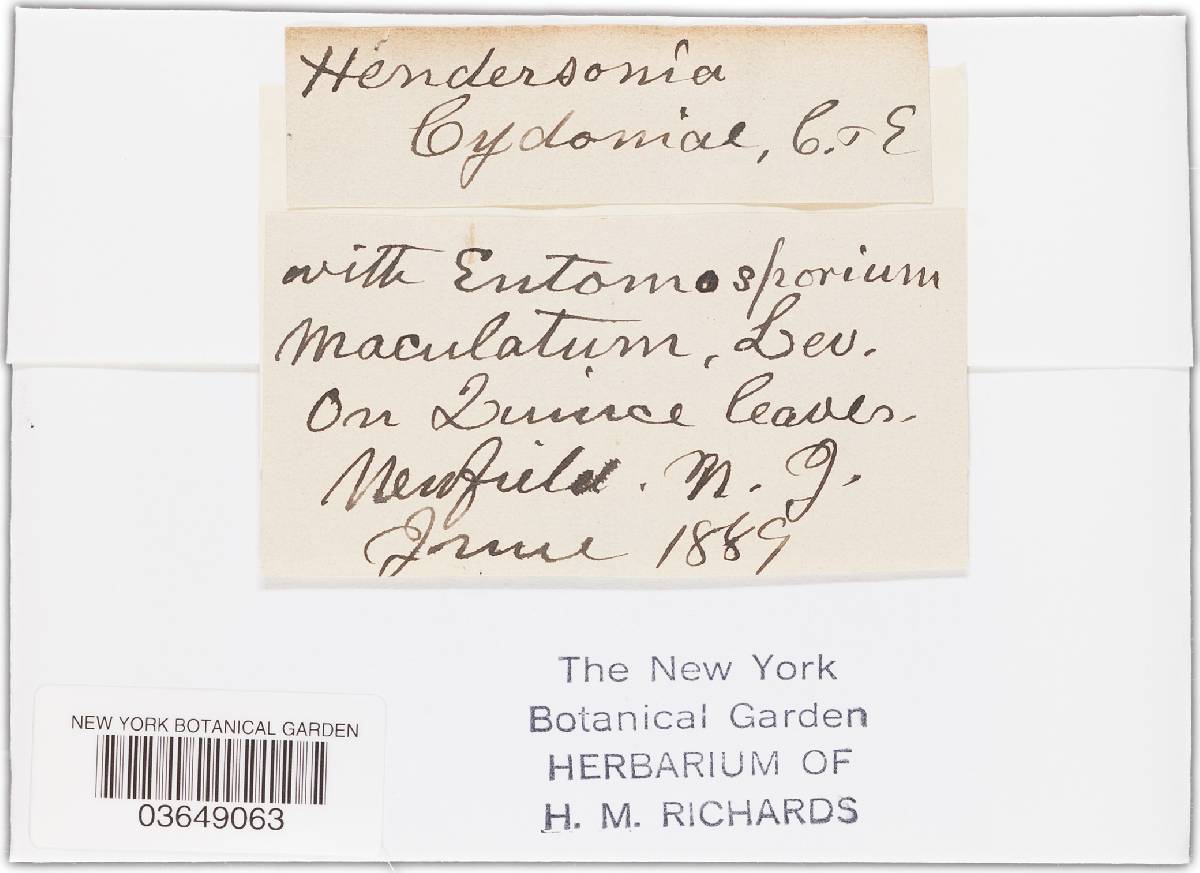 Hendersonia
Cydoniae, C. & E
with Entomosporium
maculatum, Lev.
On Quince leaves.
Newfield. N. J.
June 1889
The New York
Botanical Garden
HERBARIUM OF
H. M. RICHARDS
NEW YORK BOTANICAL GARDEN
03649063